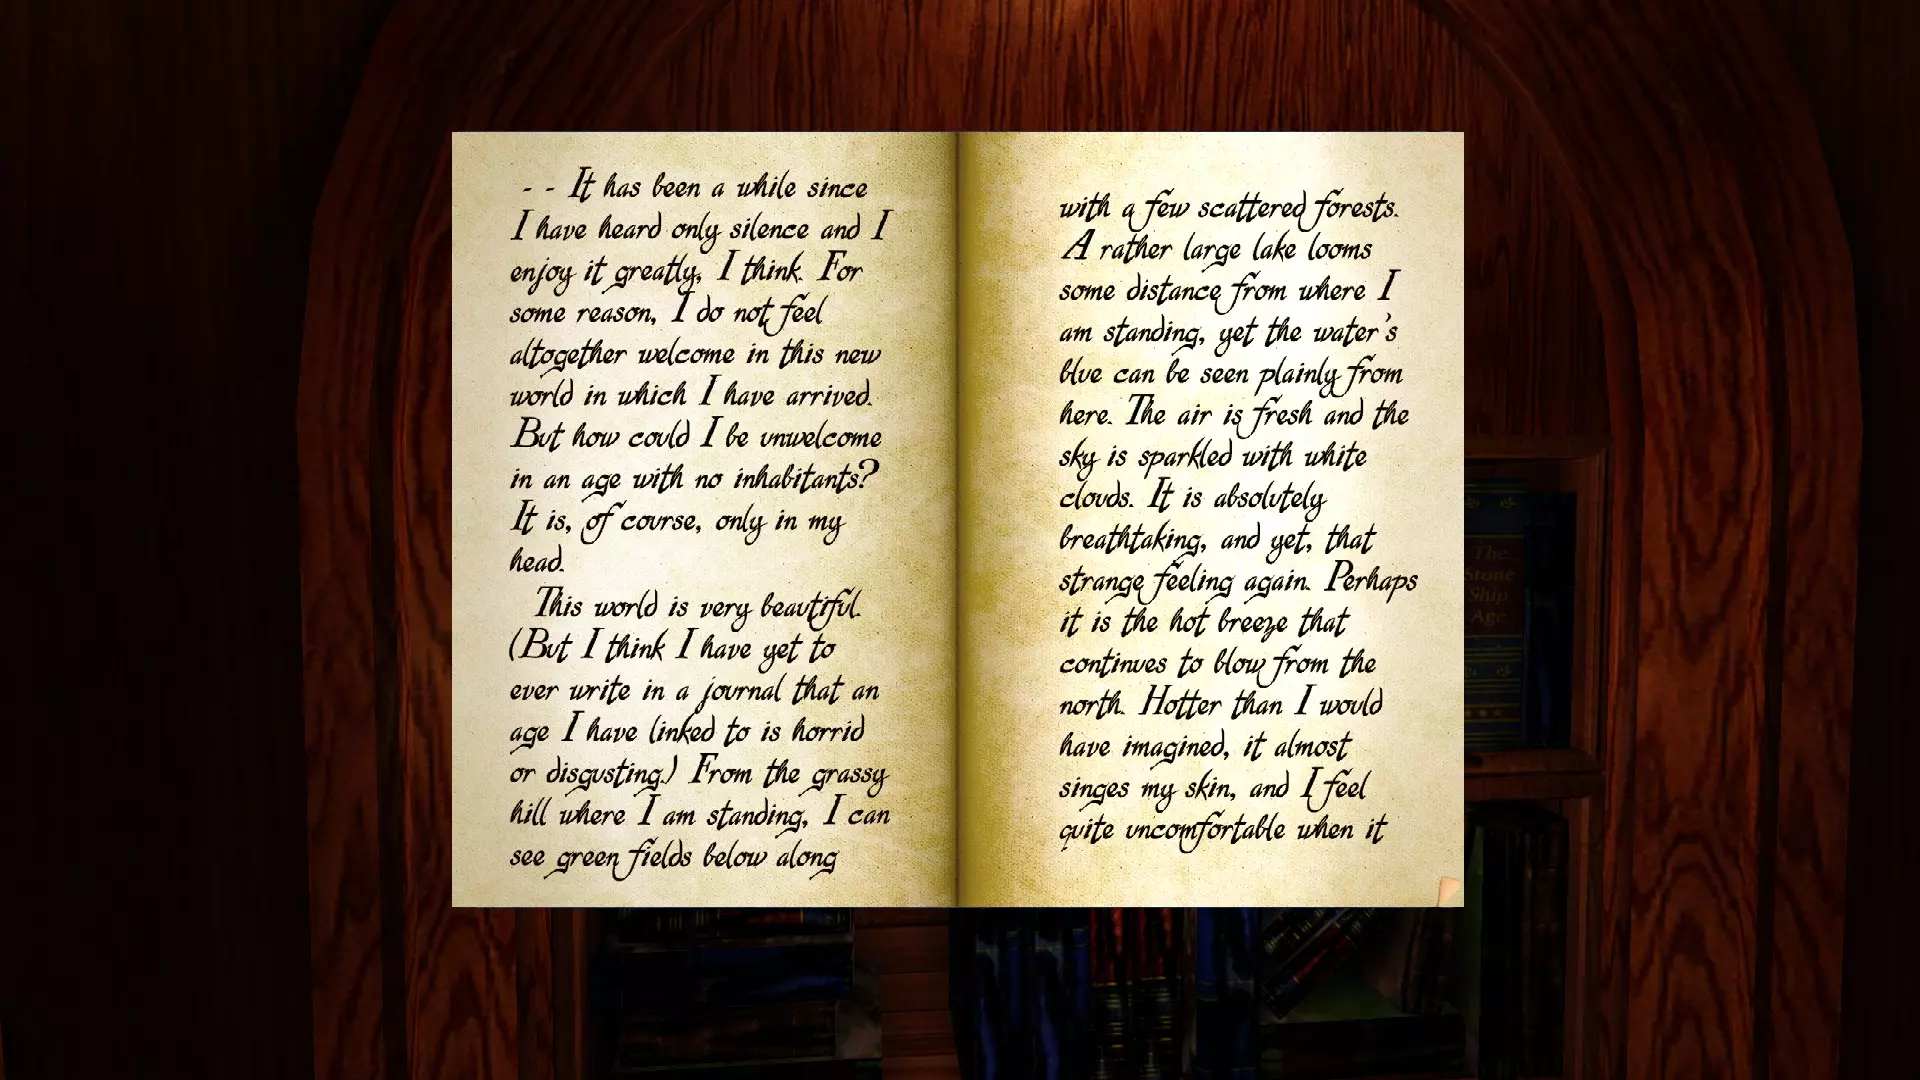 - - It has been a while since
I have heard only silence and I
enjoy it greatly, I think. For
some reason, I do not feel
altogether welcome in this new
world in which I have arrived.
But how could I be unwelcome
in an age with no inhabitants?
It is, of course, only in my
head.
This world is very beautiful.
(But I think I have yet to
ever write in a journal that an
age I have linked to is horrid
or disgusting.) From the grassy
hill where I am standing, I can
see green fields below along
with a few scattered forests.
A rather large lake looms
some distance from where I
am standing, yet the water's
blue can be seen plainly from
here. The air is fresh and the
sky is sparkled with white
clouds. It is absolutely
breathtaking, and yet, that
strange feeling again. Perhaps
it is the hot breeze that
continues to blow from the
north. Hotter than I would
have imagined, it almost
singes my skin, and I feel
quite uncomfortable when it
The
Stone
Ship
Age